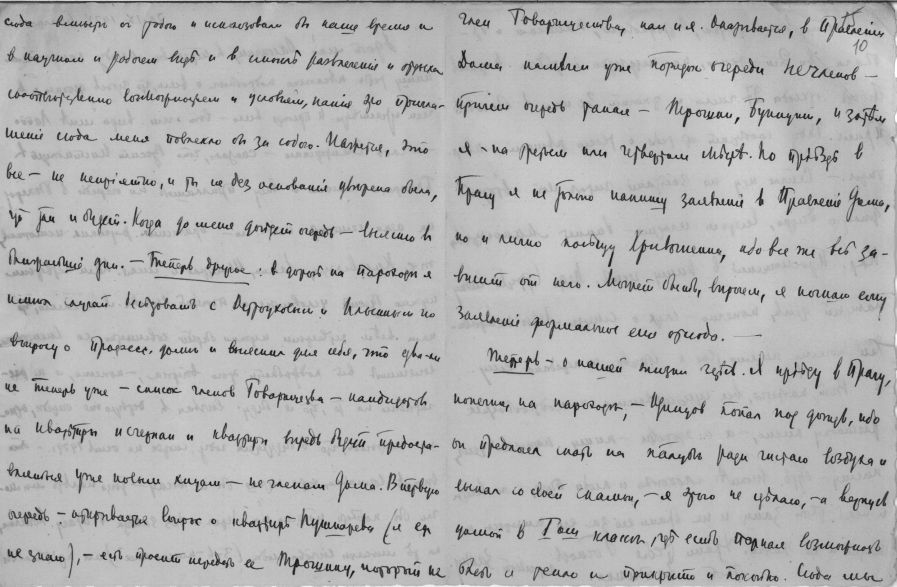 сюда вместе с тобою и использовали бы наше время и
в научном и рабочем виде и в смысле развлечения и отдыха
соответственно возможностям и условиям, какие это пригла-
шение сюда меня повлекло бы за собою. Кажется, это
все – не неприятно, и ты не без основания уверена была,
что так и будет. Когда до меня дойдет очередь – выясню в
ближайшие дни. – Теперь другое: в дороге на пароходе я
имел случай беседовать с и Ильиным по
вопросу о Професс. доме и выяснил для себя, что едва-ли
не теперь уже – список членов Товарищества – кандидатов
на квартиры исчерпан и квартиры впредь будут предостав-
вляться уже новым лицам – не членам Дома. В первую
очередь – открывается вопрос о квартире Пушкарева (я ещ
не знаю), – есть просит передать ее Трошину, который не
член Товарищества, как и я. Оказывается, в Правлении
10
Дома намечен уже порядок очереди нечленов –
причем очередь такая – Трошин, Бунин, и затем
я – на третьем или четвертом месте. По приезде в
Прагу я не только напишу заявление в Правление Дома,
но и лично посещу , ибо все же всё за-
висит от него. Может быть, впрочем, я пошлю ему
заявление формальное еще отсюда. –
Теперь – о нашей жизни здесь. Я приеду в Прагу,
конечно, на пароходе, – попал под дождь, ибо
он предпочел спать на палубе ради чистого воздуха и
выпал со своей спальни, – я этого не сделаю, – а вернусь
домой в Iом классе, где есть полная возможность
быть и тепло и прикрыто и покойно. Сюда мы